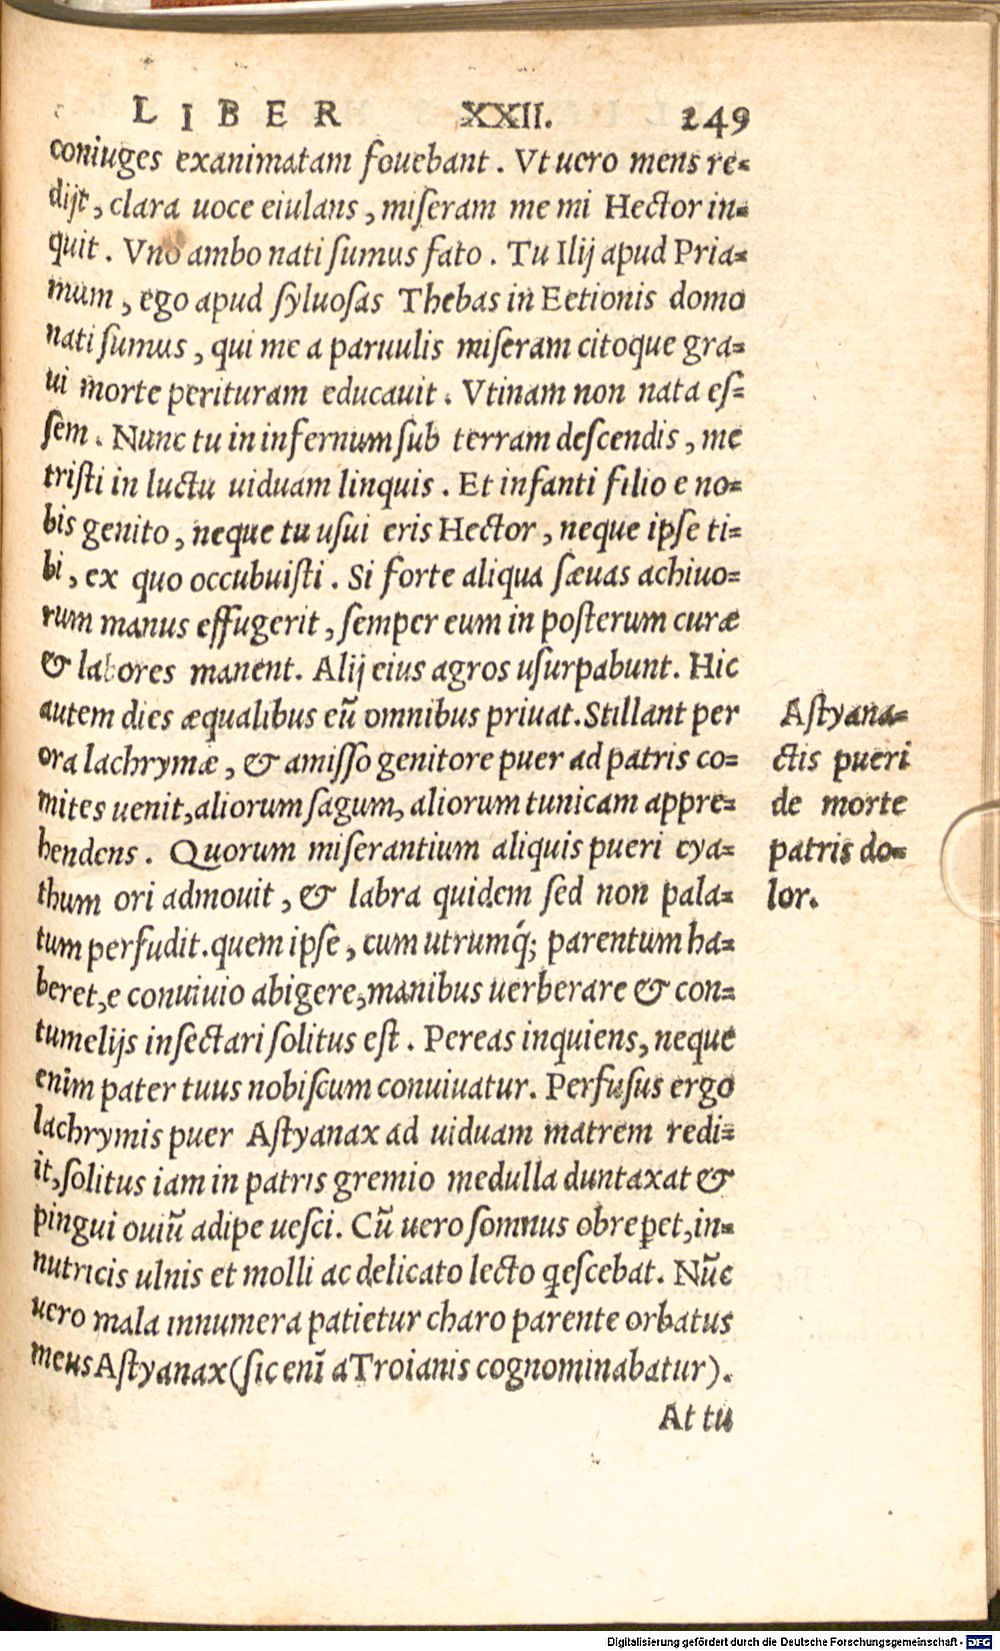 LIBER XXII. 249
coniuges exanimatam fouebant. Vt uero mens re=
dijt, clara uoce eiulans, miſeram me mi Hector in=
quit. Vno ambo nati ſumus fato. Tu Ilij apud Pria=
mum, ego apud ſyluoſas Thebas in Eetionis domo
nati ſumus, qui me a paruulis miſeram citoque gra=
ui morte perituram educauit. Vtinam non nata eſ=
ſem. Nunc tu in infernum ſub terram deſcendis, me
triſti in luctu uiduam linquis. Et infanti filio e no=
bis genito, neque tu uſui eris Hector, neque ipſe ti=
bi, ex quo occubuiſti. Si forte aliqua ſæuas achiuo=
rum manus effugerit, ſemper eum in poſterum curæ
& labores manent. Alij eius agros uſurpabunt. Hic
autem dies æqualibus eũ omnibus priuat. Stillant per
ora lachrymæ, & amiſſo genitore puer ad patris co=
mites uenit, aliorum ſagum, aliorum tunicam appre=
hendens. Quorum miſerantium aliquis pueri cya=
thum ori admouit, & labra quidem ſed non pala=
tum perfudit. quem ipſe, cum utrumq́; parentum ha=
beret, e conuiuio abigere, manibus uerberare & con=
tumelijs inſectari ſolitus eſt. Pereas inquiens, neque
enim pater tuus nobiſcum conuiuatur. Perfuſus ergo
lachrymis puer Aſtyanax ad uiduam matrem redi=
it, ſolitus iam in patris gremio medulla duntaxat &
pingui ouiũ adipe ueſci. Cũ uero ſomnus obreꝑet, in=
nutricis ulnis et molli ac delicato lecto q̃eſcebat. Nũc
uero mala innumera patietur charo parente orbatus
meus Aſtyanax (ſic enĩ a Troianis cognominabatur).
At tu
Aſtyana=
ctis pueri
de morte
patris do=
lor.
Digitalisierung gefördert durch die Deutsche Forschungsgemeinschaft - DFG